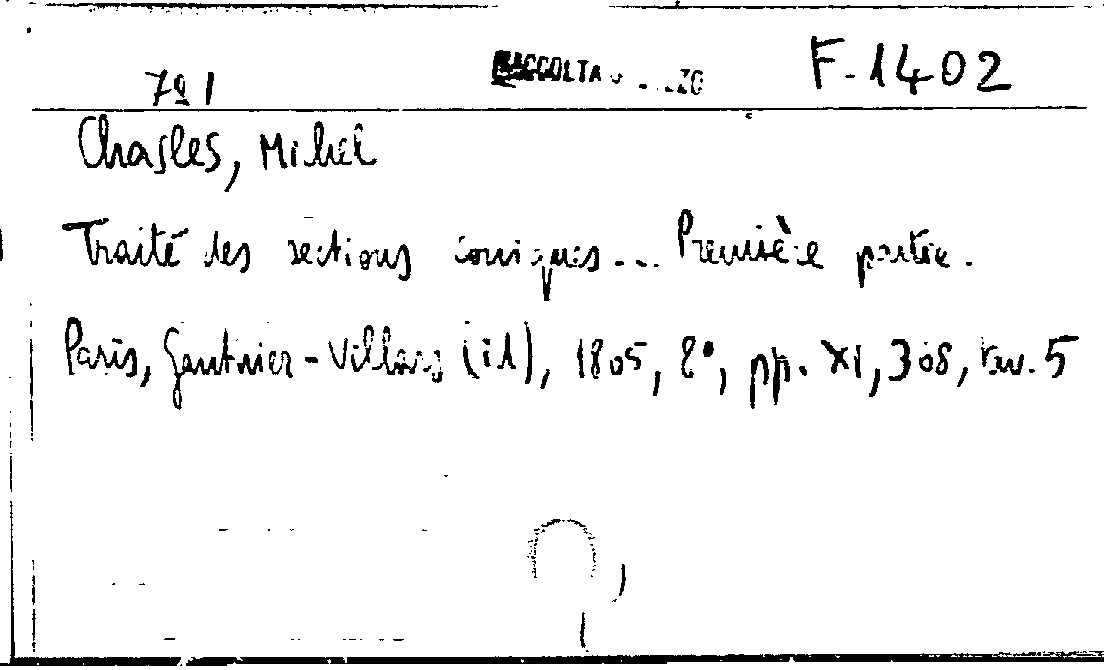 791 RACCOLTA F-1402
Chasles, Michel
Traité des sections coniques... Première partie.
Paris, Gauthier-Villars (il), 1865, 8°, pp. XI, 368, tav. 5